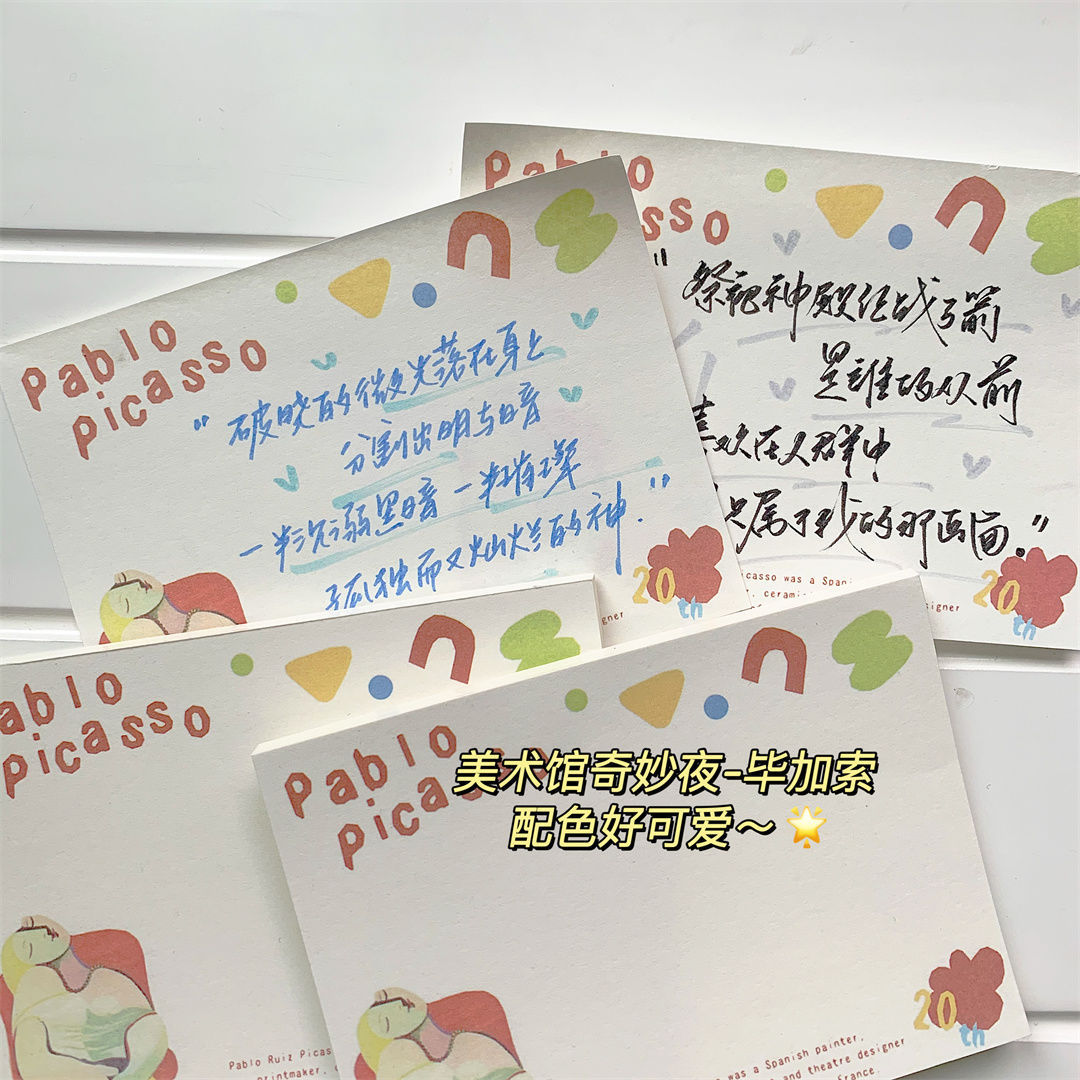 Pablo
picasso
"破晓的微光落在身上
分割出明与暗
一半沉溺黑暗 一半璀璨
孤独而又灿烂的神."
20th
gner
Pablo
picasso
"祭祀神殿征战弓箭
是誰的从前
喜欢在人群中
只属于妳的那画面."
icasso was a Spani
, cerami
designer
20th
ablo
picasso
Pablo Ruiz Picas
printmaker,
Pablo
picasso
美术馆奇妙夜-毕加索
配色好可爱～🌟
20th
was a Spanish painter,
and theatre designer
France.